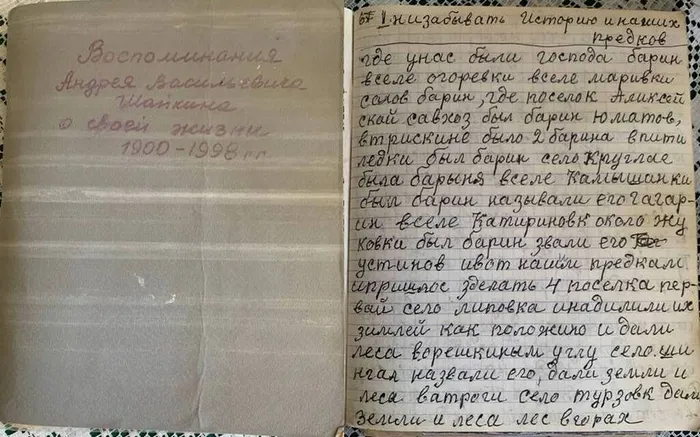 Воспоминания
Андрея Васильевича
Шапкина
о своей жизни
1900-1998 гг.
1. низабывать Историю инаших
предков
где унас были господа барин
вселе огоревки вселе маривки
солов барин, где поселок Аликсей
ской савхоз был барин Юматов,
втрискине было 2 барина впити
ледки был барин село Круглае
была барыня вселе Камышанки
был барин называли его гагар-
ин вселе Катириновк около жу
ковки был барин звали его
устинов ивот нашим предкам
ипришлос зделать 4 поселка пер-
вай село липовка инадилили их
зимлей как положино и дали
леса ворешкиным углу село. ши
нгал назвали его, дали земли и
леса ватроги село турзовк дали
земли и леса лес вгорах